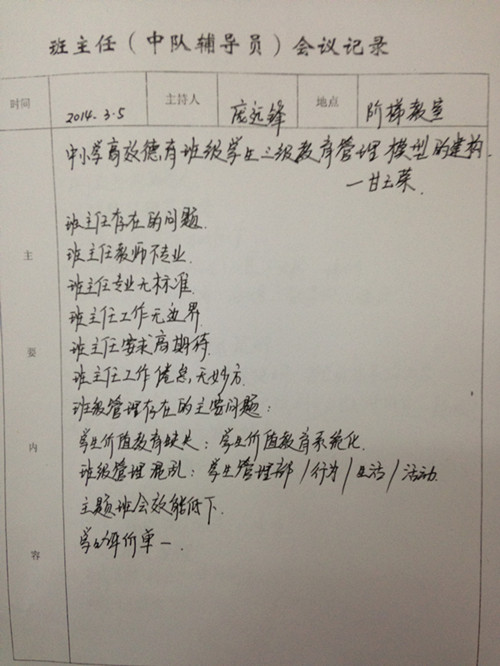 班主任（中队辅导员）会议记录
时间 2014.3.5 主持人 庞远锋 地点 阶梯教室
中小学高效德育班级学生三级教育管理模型的建构
—甘玉荣
班主任存在的问题.
班主任教师不专业.
班主任专业无标准.
班主任工作无边界
班主任要求高期待
班主任工作倦怠,无妙方.
班级管理存在的主要问题：
学生价值教育缺失：学生价值教育系统化.
班级管理混乱：学生管理部/行为/生活/活动.
主题班会效能低下.
学生评价单一.
主要内容